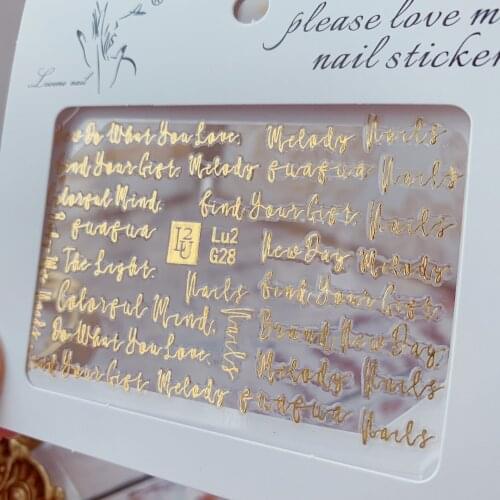 Loveme nail
please love m
nail sticker
Do What You Love. Melody Nails
Find Your Gift. Melody guagua Nails
olorful Mind. Find Your Gift. Nails
guagua
L2U
Lu2
G28
New Day. Melody
The Light. Nails Find Your Gift.
Colorful Mind. Nails Brand New Day.
Do What You Love. Melody Nails
Find Your Gift. Melody guagua Nails